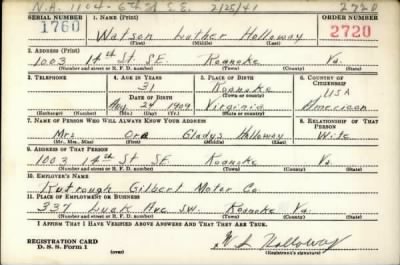 N.A. 1104 - 6th St S.E. 2/25/41 2720
SERIAL NUMBER 1. NAME (Print) ORDER NUMBER
1760 Watson Luther Holloway 2720
(First) (Middle) (Last)
2. ADDRESS (Print)
1003 14th St. SE. Roanoke Va.
(Number and street or R. F. D. number) (Town) (County) (State)
3. TELEPHONE 4. AGE IN YEARS 5. PLACE OF BIRTH 6. COUNTRY OF CITIZENSHIP
31 Roanoke USA
DATE OF BIRTH (Town or county)
24 1909 Virginia American
(Exchange) (Number) (Mo.) (Day) (Yr.) (State or country)
7. NAME OF PERSON WHO WILL ALWAYS KNOW YOUR ADDRESS 8. RELATIONSHIP OF THAT PERSON
Mrs Ora Gladys Holloway Wife
(Mr., Mrs., Miss) (First) (Middle) (Last)
9. ADDRESS OF THAT PERSON
1003 14th St SE Roanoke Va.
(Number and street or R. F. D. number) (Town) (County) (State)
10. EMPLOYER'S NAME
Rutrough Gilbert Motor Co
11. PLACE OF EMPLOYMENT OR BUSINESS
337 Luck Ave SW. Roanoke Va.
(Number and street or R. F. D. number) (Town) (County) (State)
I AFFIRM THAT I HAVE VERIFIED ABOVE ANSWERS AND THAT THEY ARE TRUE.
REGISTRATION CARD
D. S. S. Form 1 (over) W L Holloway
(Registrant's signature)